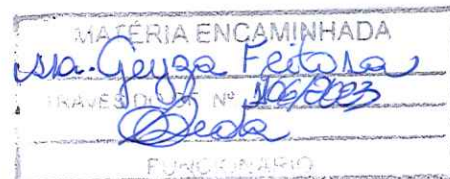 MATÉRIA ENCAMINHADA
Sra. Geyza Feitosa
Nº 106/2023
FUNCIONÁRIO